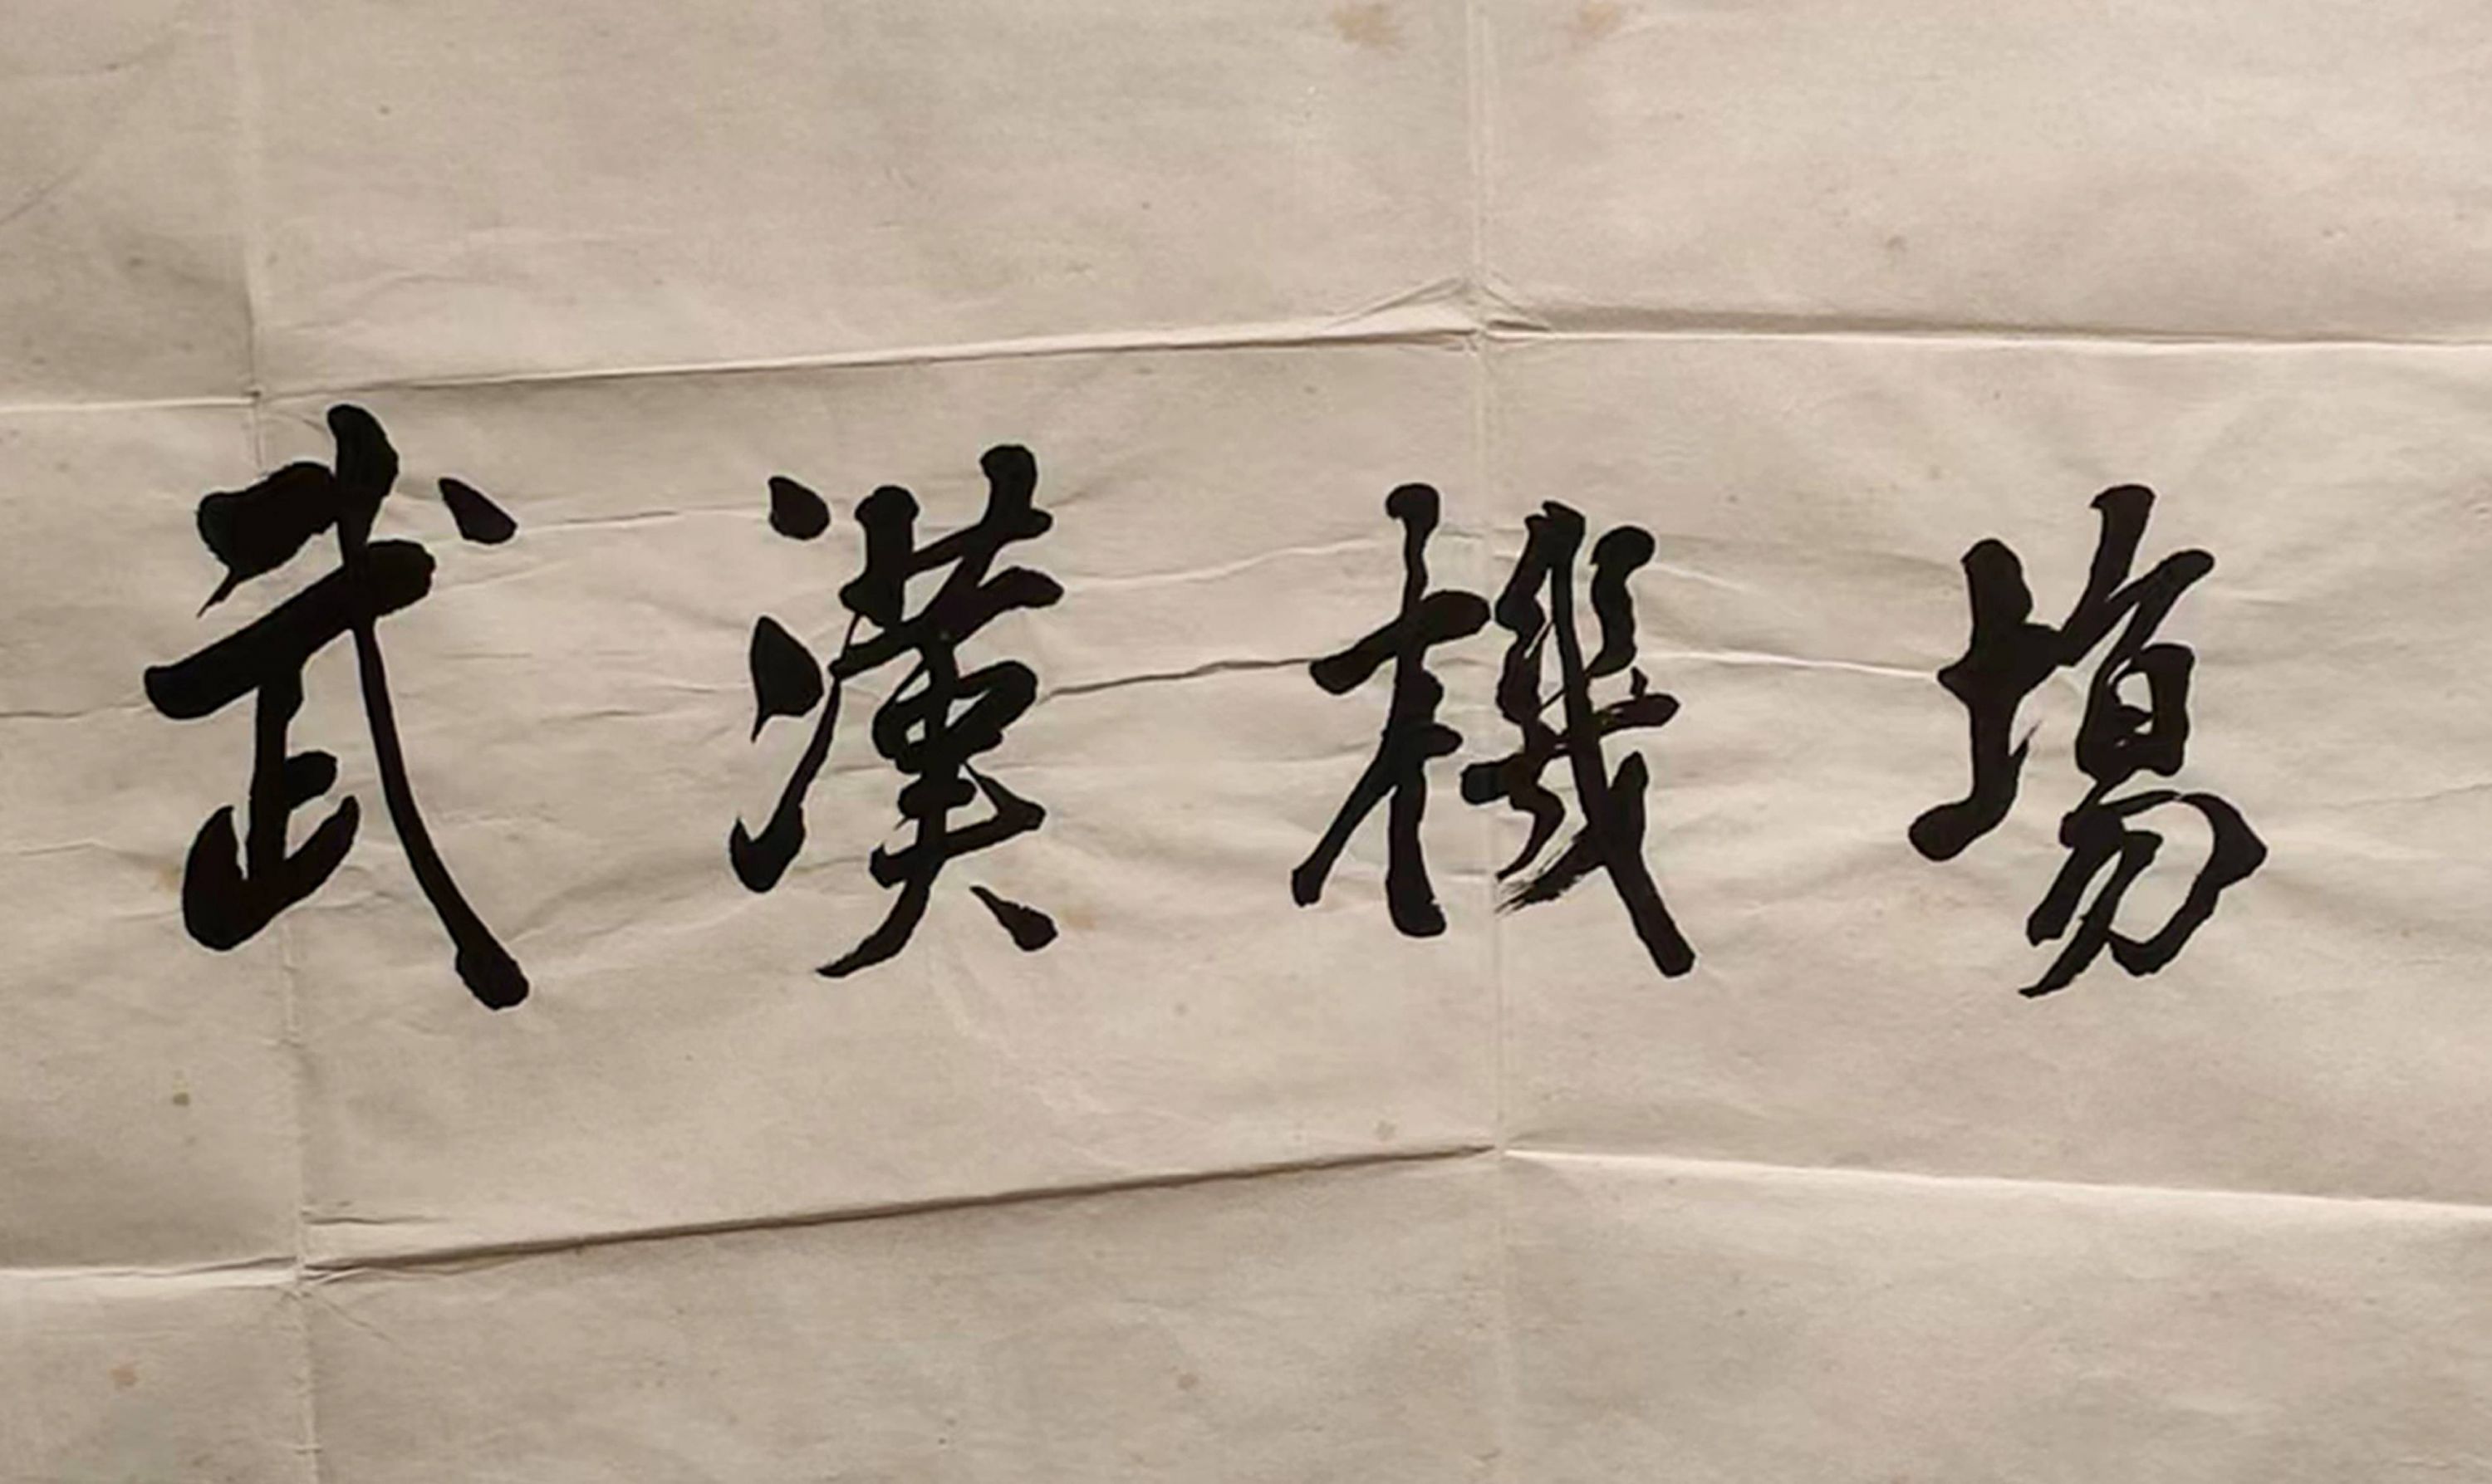 武漢機場